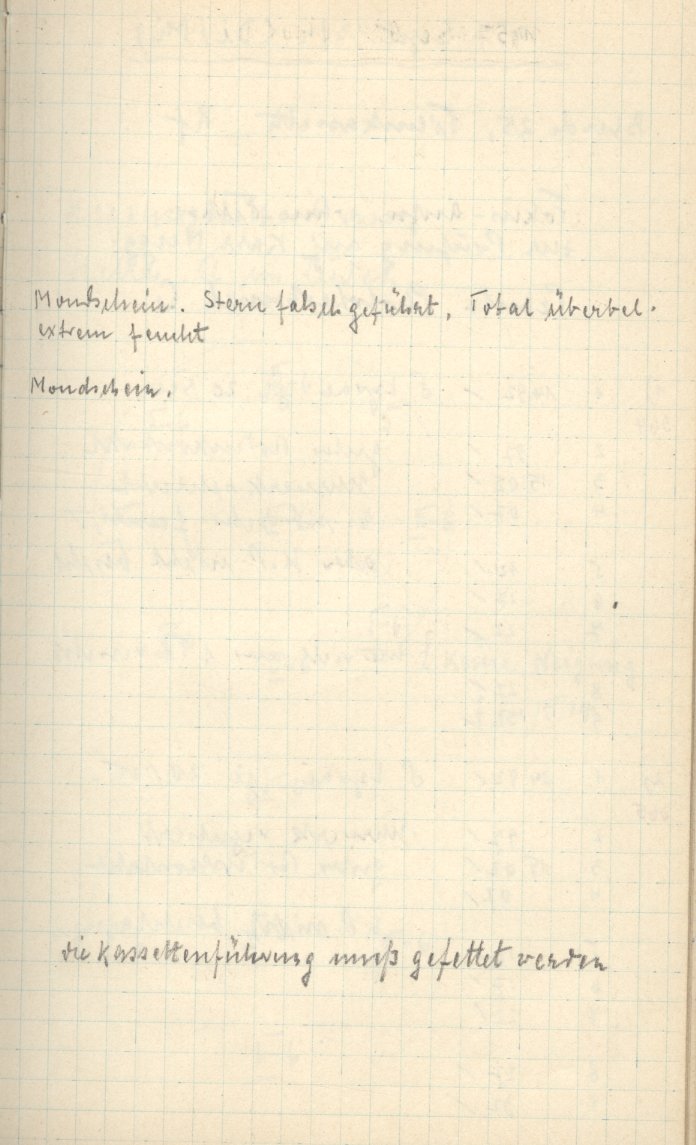 Mondschein. Stern falsch geführt, Total überbel.
extrem feucht
Mondschein.
die Kassettenführung muß gefettet werden